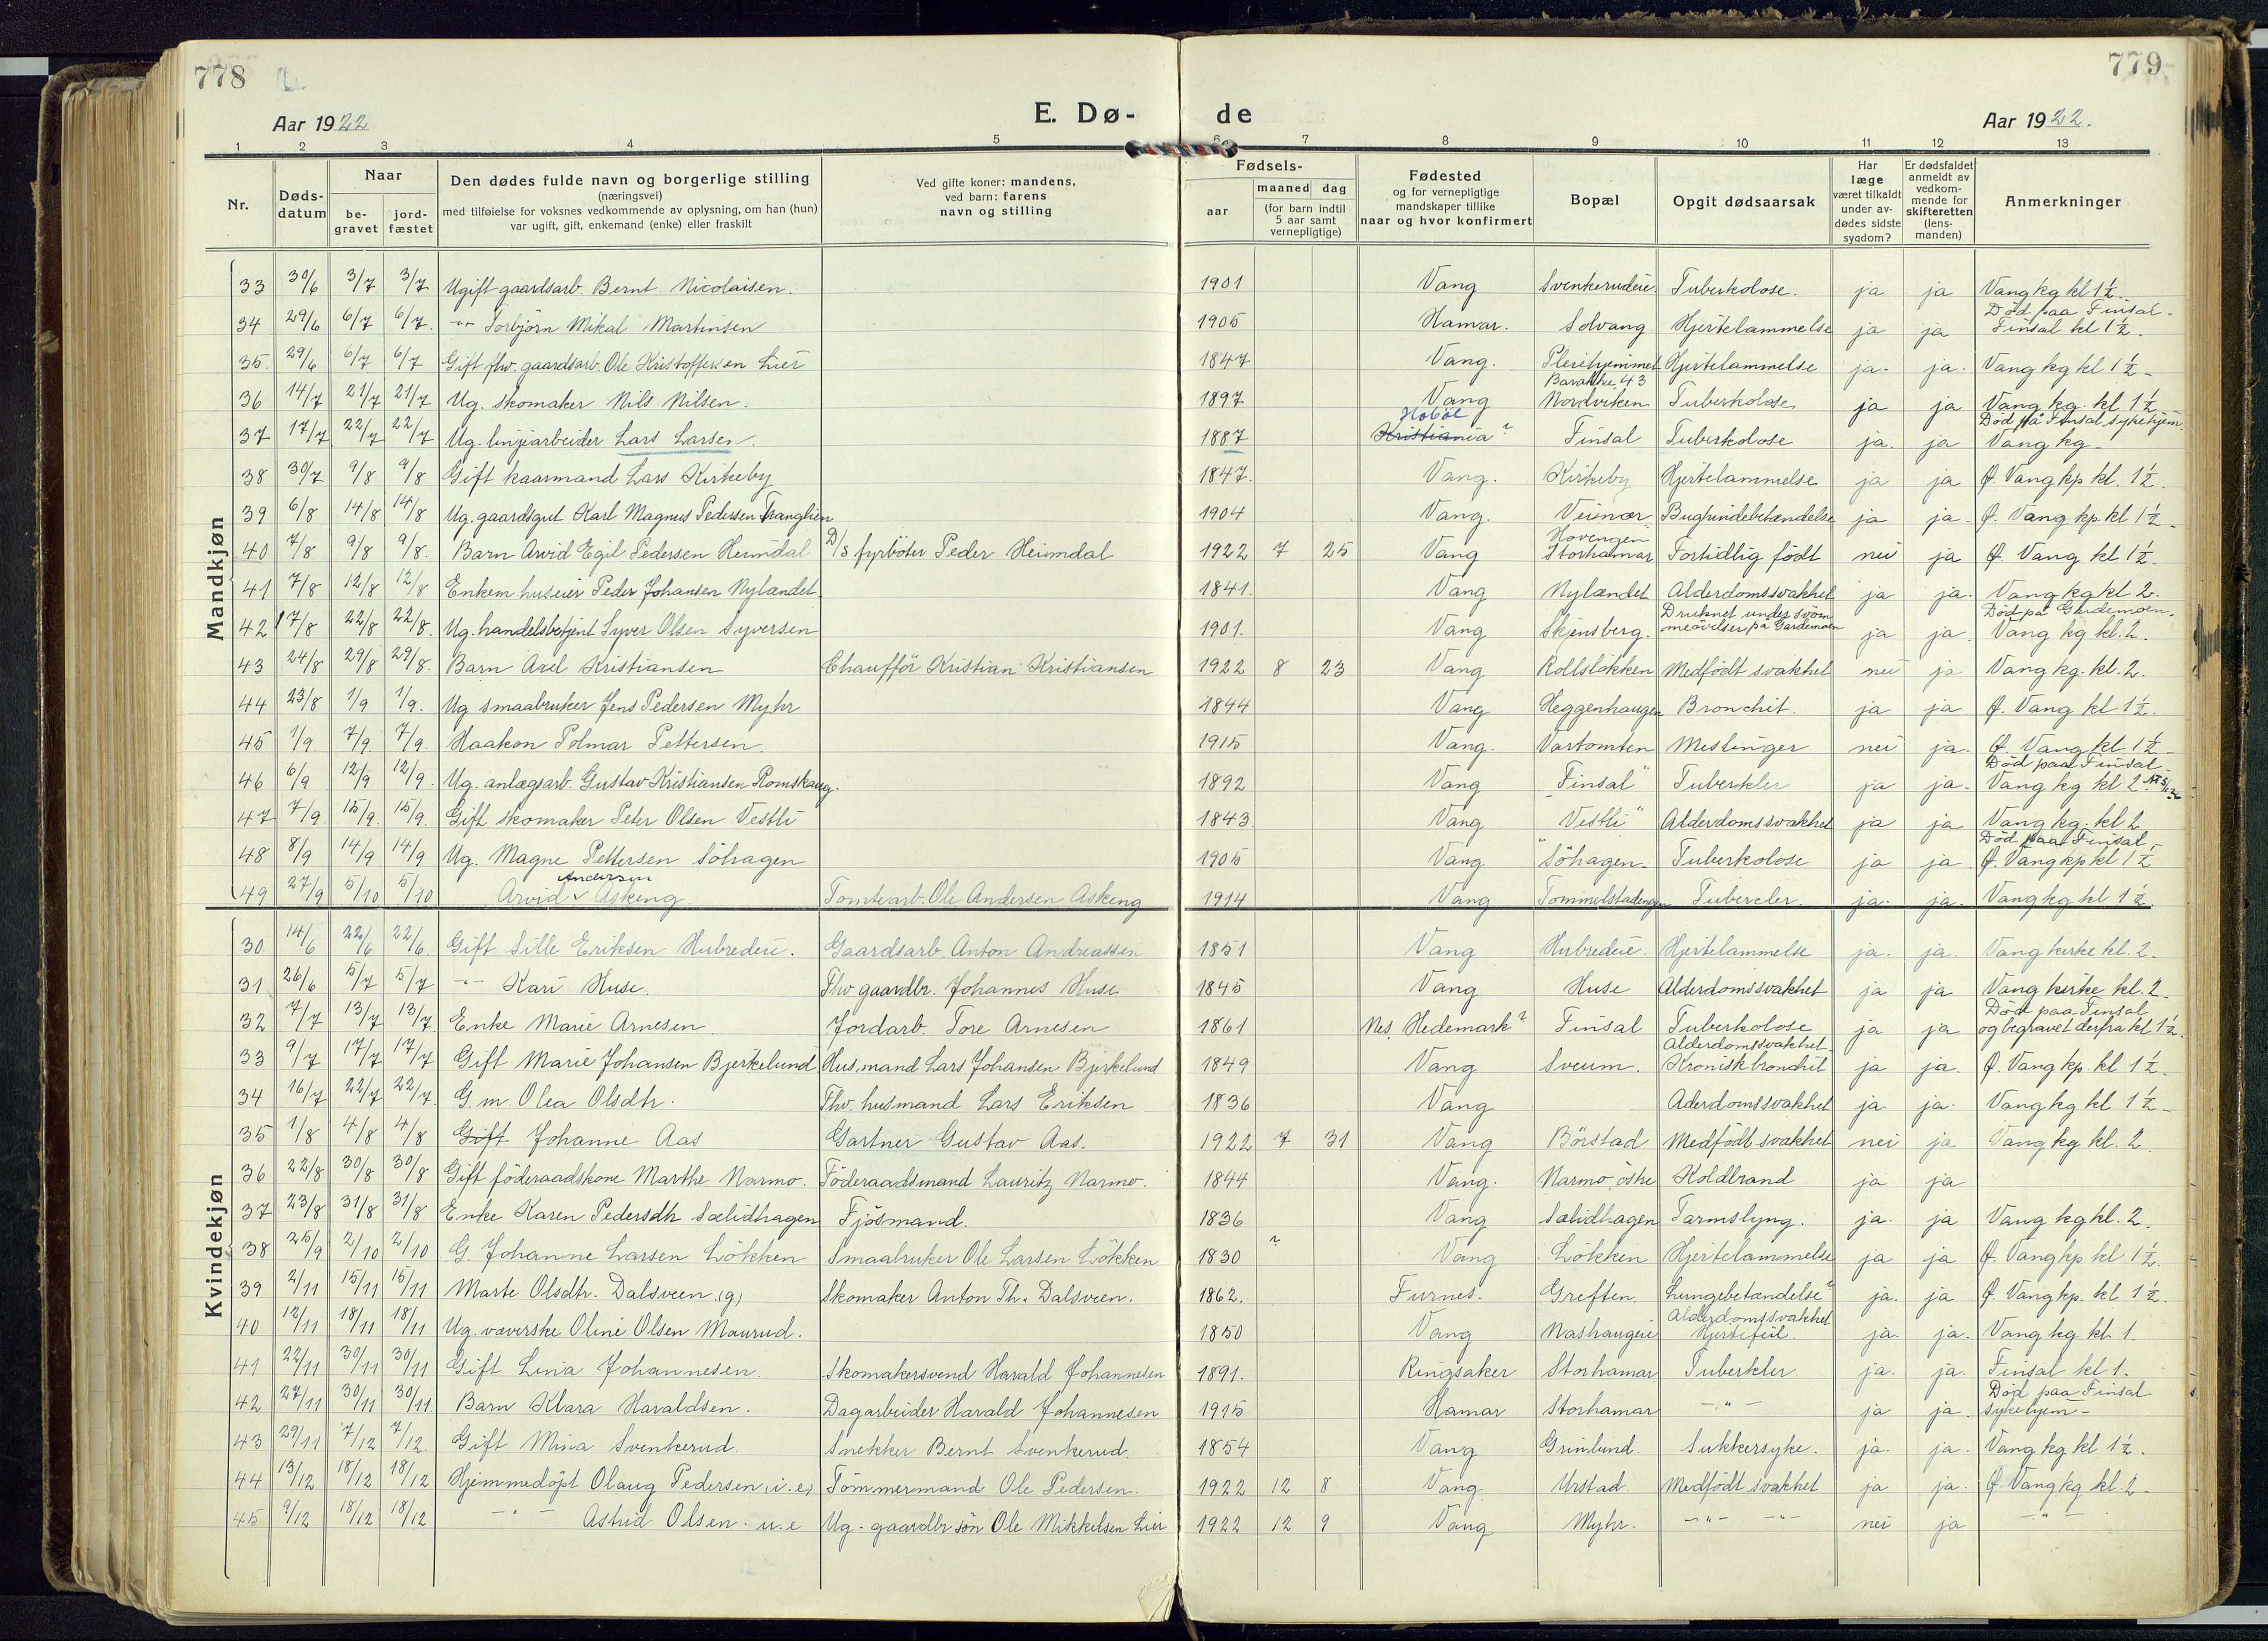 778
779
Aar 1922
E. Dø-
de
Aar 1922.
1 2 3 4 5 6 7 8 9 10 11 12 13
Nr.
Døds-
datum
Naar
be-
gravet
jord-
fæstet
Den dødes fulde navn og borgerlige stilling
(næringsvei)
med tilføielse for voksnes vedkommende av oplysning, om han (hun)
var ugift, gift, enkemand (enke) eller fraskilt
Ved gifte koner: mandens,
ved barn: farens
navn og stilling
Fødsels-
aar
maaned dag
(for barn indtil
5 aar samt
vernepligtige)
Fødested
og for vernepligtige
mandskaper tillike
naar og hvor konfirmert
Bopæl
Opgit dødsaarsak
Har
læge
været tilkaldt
under av-
dødes sidste
sygdom?
Er dødsfaldet
anmeldt av
vedkom-
mende for
skifteretten
(lens-
manden)
Anmerkninger
Mandkjøn
33 30/6 3/7 3/7 Ugift gaardsarb. Bernt Nicolaisen. 1901 Vang Svenkerudeie. Tuberkolose. ja ja Vang kg kl 1½.
34 29/6 6/7 6/7. -"- Torbjörn Mikal Martinsen 1905 Hamar. Solvang Hjertelammelse ja ja Död paa Finsal-
Finsal kl 1½.
35. 29/6 6/7 6/7 Gift fhv. gaardsarb. Ole Kristoffersen Lier 1847 Vang. Pleiehjemmet Hjertelammelse ja. ja. Vang kg kl 1½-
36 14/7 21/7 21/7 Ug. skomaker Nils Nilsen. 1897 Vang Barakke 43
Nordviken Tuberkolose ja ja Vang kg. kl. 1½
37 17/7 22/7 22/7 Ug. linjearbeider Lars Larsen. 1887 Hobøl
Kristiania? Finsal Tuberkolose ja. ja Död på Finsal sykehjem
Vang kg-
38 30/7 9/8 9/8 Gift kaarmand Lars Kirkeby 1847. Vang. Kirkeby Hjertelammelse ja ja Ø. Vang kp kl. 1½.
39 6/8 14/8 14/8 Ug. gaardsgut Karl Magnus Pedersen Tranglien 1904 Vang. Veinær Bughindebetændelse ja ja. Ø. Vang kp. kl 1½-
40 7/8 9/8 9/8. Barn Arvid Egil Pedersen Heimdal D/S fyrböter Peder Heimdal 1922 7 25 Vang Hovengen
Storhamar Fortidlig födt nei ja Ø. Vang kl 1½.
41 7/8 12/8 12/8 Enkem. huseier Peder Johansen Nylændet 1841. Vang Nylændet Alderdomssvakhet ja ja. Vang kg kl 2.
42 17/8 22/8 22/8. Ug. handelsbetjent Syver Olsen Syversen 1901. Vang Skjensberg. Druknet under svöm
meövelser på Gardemoen ja ja Död på Gardemoen.
Vang kg kl. 2.
43 24/8 29/8 29/8. Barn Axel Kristiansen Chaufför Kristian Kristiansen 1922 8 23 Vang Rollslökken Medfödt svakhet nei ja Vang kg. kl. 2.
44 23/8 1/9 1/9. Ug smaabruker Jens Pedersen Myhr 1844 Vang Heggenhaugen Bronchit. ja ja Ø. Vang kl 1½.
45 1/9. 7/9. 7/9. Haakon Polmar Pettersen. 1915 Vang. Vartomten Meslinger nei ja. Ø. Vang kl 1½-
46 6/9 12/9 12/9. Ug. anlægsarb. Gustav Kristiansen Romskaug. 1892 Vang "Finsal" Tuberkler ja ja. Död paa Finsal-
Vang kg kl 2
47 7/9. 15/9. 15/9. Gift skomaker Peter Olsen Vestli 1843. Vang "Vestli" Alderdomssvakhet ja ja Vang kg. kl 2
48 8/9 14/9 14/9 Ug. Magne Pettersen Söhagen 1905 Vang "Söhagen- Tuberkolose ja ja. Död paa Finsal,
Ø. Vang kp kl 1½
49 27/9 5/10 5/10 Andersen
Arvid Askeng. Tomtearb. Ole Andersen Askeng 1914 Vang Tommelstadengen Tubercler. ja. ja. Vang kg kl 1½.
Kvindekjøn
30 14/6 22/6 22/6. Gift Sille Eriksen Hubredeie. Gaardsarb. Anton Andreassen 1851 Vang Hubredeie Hjertelammelse ja. ja. Vang kirke kl. 2-
31 26/6 5/7 5/7 -"- Kari Huse. Fhv gaardbr. Johannes Huse 1845 Vang Huse Alderdomssvakhet ja ja Vang kirke kl. 2-
32 7/7 13/7 13/7. Enke Marie Arnesen Jordarb. Tore Arnesen 1861 Nes, Hedemark? Finsal Tuberkolose ja ja Död paa Finsal
og begravet derfra kl 1½.
33 9/7 17/7 17/7 Gift Marie Johansen Bjerkelund Husmand Lars Johansen Bjerkelund 1849 Vang Sveum. Alderdomssvakhet-
Kronisk bronchit ja ja. Ø. Vang kp. kl 1½.
34 16/7 22/7 22/7. G. m. Olea Olsdtr. Fhv. husmand Lars Eriksen 1836 Vang Aderdomssvakhet ja. ja. Vang kg kl 1½-
35 1/8 4/8 4/8 Gift Johanne Aas Gartner Gustav Aas. 1922 7 31 Vang Börstad Medfödt svakhet nei ja Vang kg kl. 2.
36 22/8 30/8 30/8 Gift föderaadskone Marthe Narmo. Föderaadsmand Lauritz Narmo. 1844 Vang. Narmo, östre Koldbrand ja ja
37 23/8 31/8 31/8 Enke Karen Pedersdtr Sælidhagen Fjösmand. 1836 Vang Sælidhagen Tarmslyng. ja. ja Vang kg kl. 2.
38 25/9 2/10 2/10 G. Johanne Larsen Lökken Smaabruker Ole Larsen Lökken 1830 ? Vang Lökken Hjertelammelse ja ja Ø. Vang kp kl 1½.
39 2/11 15/11 15/11 Marte Olsdtr. Dalsveen (g) Skomaker Anton Th. Dalsveen. 1862. Furnes. Greften. Lungebetændelse? ja. ja Ø. Vang kp. kl 1½.
40 12/11 18/11 18/11 Ug. væverske Oline Olsen Maurud. 1850 Vang Nashaugeie Alderdomssvakhet
Hjertefeil. ja. ja. Vang kg kl. 1.
41 22/11 30/11 30/11 Gift Lina Johannesen. Skomakersvend Harald Johannesen 1891. Ringsaker Storhamar Tuberkler. ja. ja. Finsal kl 1.
42 27/11 30/11 30/11 Barn Klara Haraldsen. Dagarbeider Harald Johannesen 1915 Hamar Storhamar -"- ja ja. Död paa Finsal
sykehjem-
43 29/11 7/12 7/12. Gift Mina Svenkerud. Snekker Bernt Svenkerud. 1854 Vang Grinlund. Sukkersyke. ja. ja. Vang kg kl 1½.
44 13/12 18/12 18/12 Hjemmedöpt Olaug Pedersen (i.e) Tömmermand Ole Pedersen. 1922 12 8 Vang Urstad Medfödt svakhet ja ja. Ø. Vang kg kl. 2-
45 9/12 18/12 18/12 -"- Astrid Olsen. u.e Ug. gaardbr sön Ole Mikkelsen Lier 1922 12 9 Vang Myhr. -"- -"- nei ja -"-